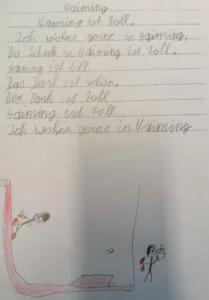 Haiming
Haiming ist toll.
Ich wohne gerne in Haiming.
Die Schule in Haiming ist toll.
Haiming ist toll
Das Dorf ist schön.
Der Park ist toll
Haiming ist toll
Ich wohne gerne in Haiming